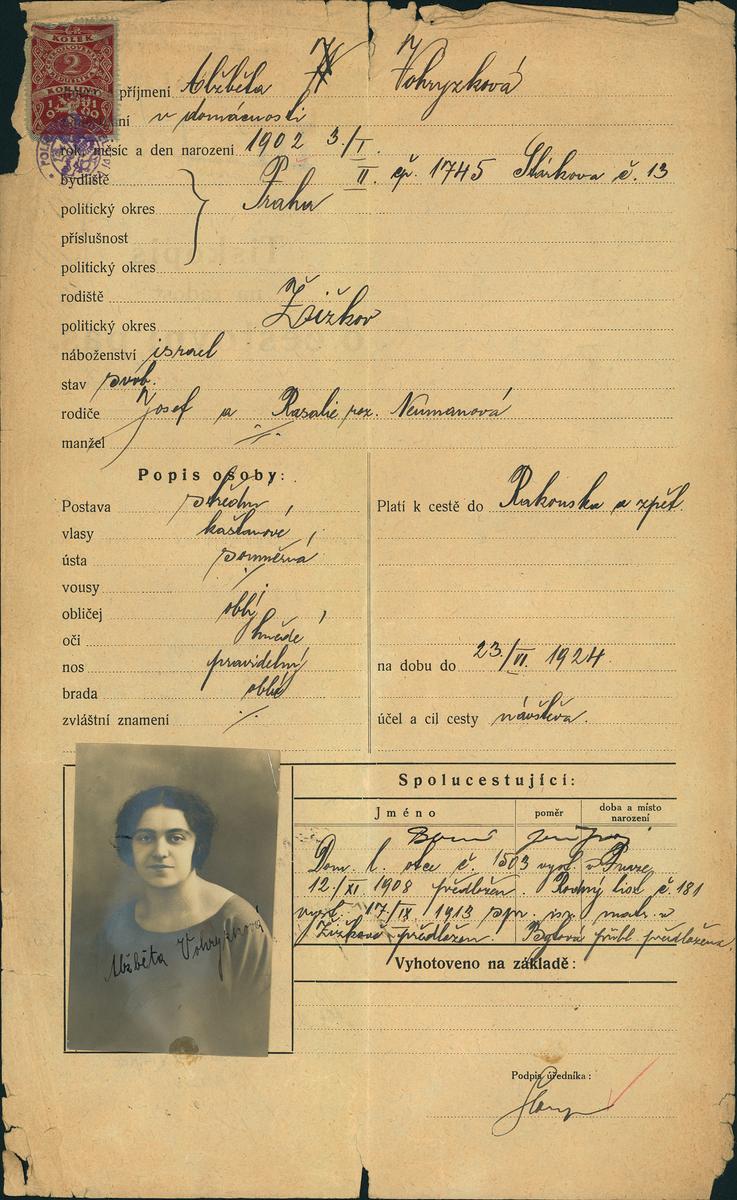 KOLEK
2
KORUNY
1919
příjmení Alžběta Vohryzková
v domácnosti
rok, měsíc a den narození 1902 3./I.
bydliště II. čp. 1745 Slárkova č. 13
politický okres Praha
příslušnost
politický okres
rodiště
politický okres Žižkov
náboženství israel
stav svob.
rodiče Josef a Rosalie roz. Neumanová
manžel
Popis osoby:
Postava střední
vlasy kaštanové
ústa souměrná
vousy
obličej oblý
oči hnědé
nos pravidelný
brada oblá
zvláštní znamení
Platí k cestě do Rakouska a zpět.
na dobu do 23./VI. 1924.
účel a cil cesty návštěva.
Spolucestující:
Jméno poměr doba a místo narození
Dom. l. otce č. 1503 vyst. v Praze
12./XI 1908 předložen. Rodný list č 181
vyst. 17/IX 1913 isr. matr. v
Žižkově předložen. předložena.
Vyhotoveno na základě:
Alžběta Vohryzková
Podpis úředníka: